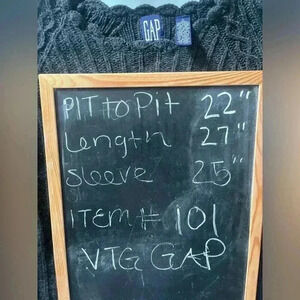 GAP
PIT to Pit 22"
Length 27"
Sleeve 25"
ITEM# 101
VTG GAP